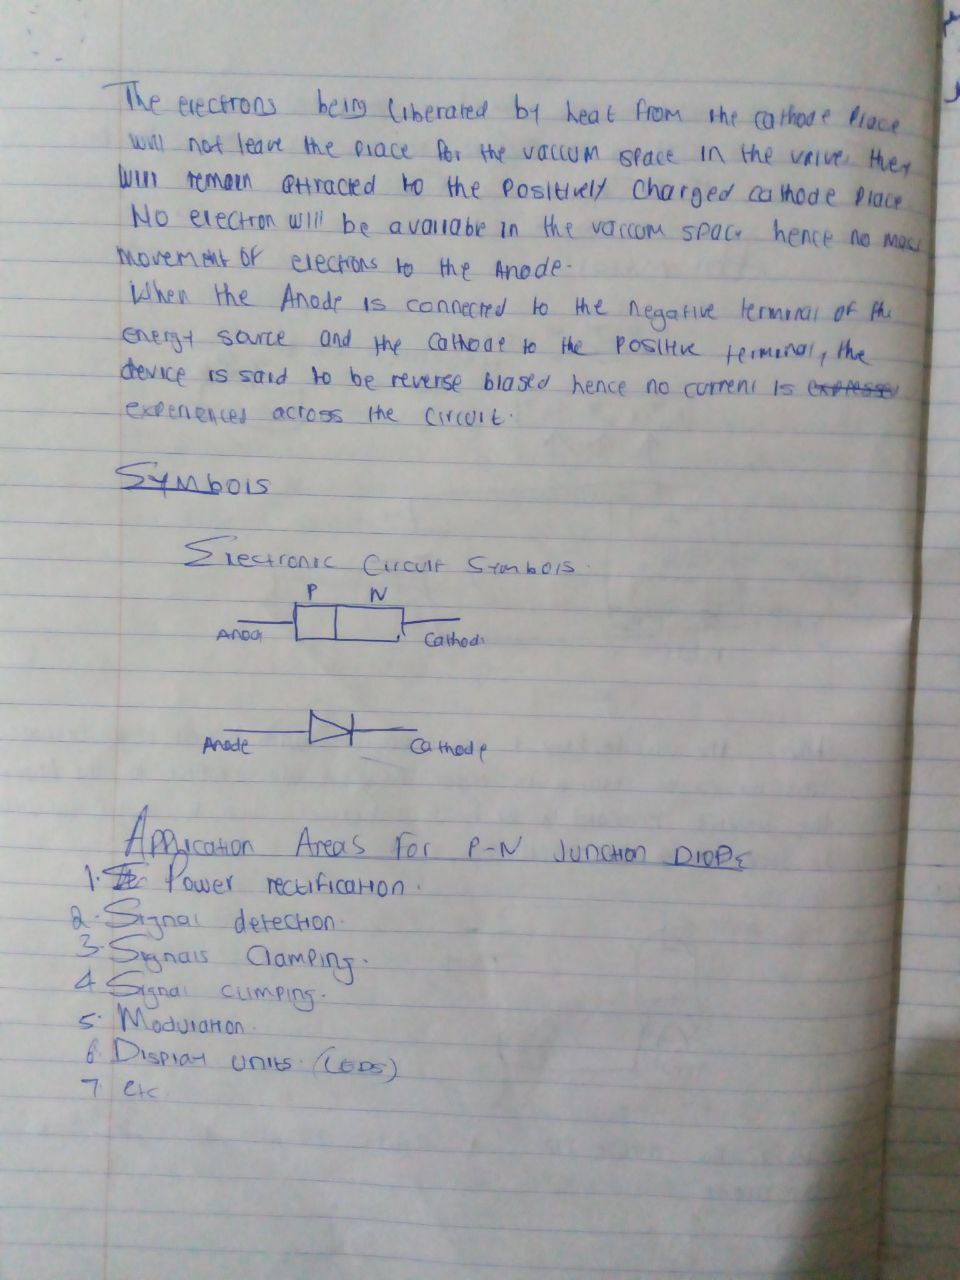 The electrons being liberated by heat from the cathode place
will not leave the place for the vaccum space in the valve. they
will remain attracted to the positively charged cathode place
No electron will be available in the vaccum space hence no mass
movement of electrons to the Anode.
When the Anode is connected to the negative terminal of the
energy source and the cathode to the positive terminal, the
device is said to be reverse biased hence no current is
experiences across the circuit.
Symbols
Electronic Circuit Symbols.
P N
Anode Cathode
Anode Cathode
Application Areas For P-N Junction DIODE
1. Power rectification.
2. Signal detection.
3. Signals Clamping.
4 Signal clipping.
5. Modulation.
6 Display units. (LEDS)
7 etc